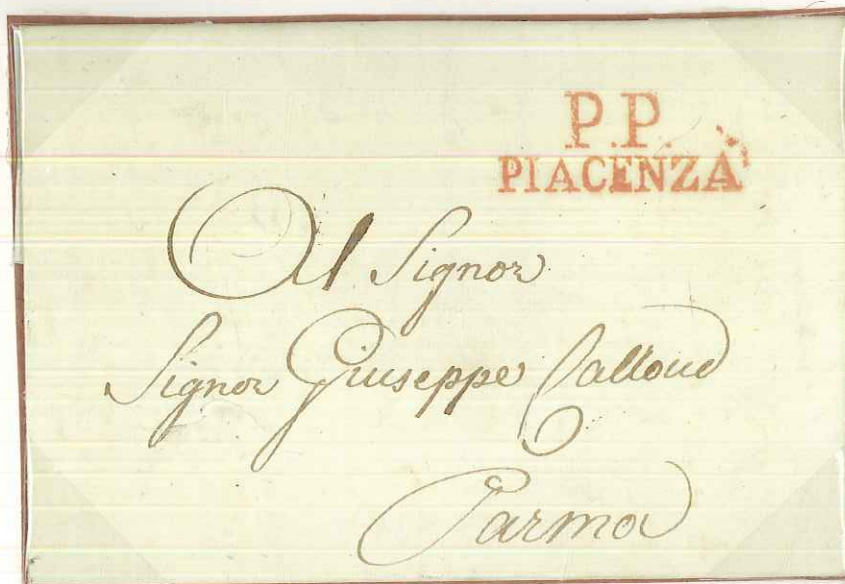 P.P.
PIACENZA
Al Signor
Signor Giuseppe Calloud
Parma